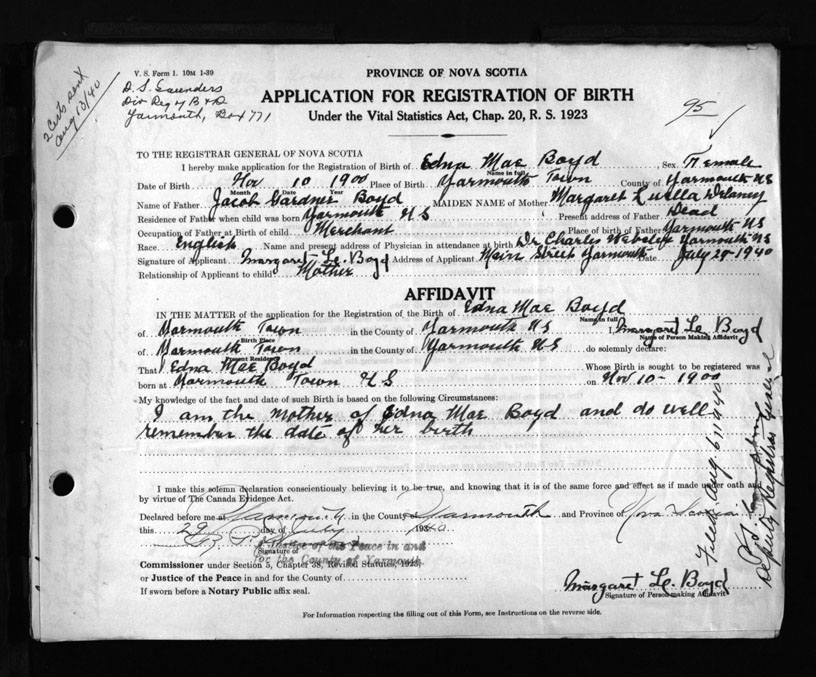 2 Certs sent
Aug 13/40
V. S. Form 1. 10M 1-39
D. S. Saunders
Div Reg of B & D
Yarmouth, Box 771
PROVINCE OF NOVA SCOTIA
APPLICATION FOR REGISTRATION OF BIRTH
Under the Vital Statistics Act, Chap. 20, R. S. 1923
95
TO THE REGISTRAR GENERAL OF NOVA SCOTIA
I hereby make application for the Registration of Birth of Edna Mae Boyd, Sex Female
Name in full
Date of Birth Nov 10 1900 Place of Birth Yarmouth Town County of Yarmouth N S
Month Date Year
Name of Father Jacob Gardner Boyd MAIDEN NAME of Mother Margaret Luella Delaney
Residence of Father when child was born Yarmouth N S Present address of Father Dead
Occupation of Father at Birth of child Merchant Place of birth of Father Yarmouth N S
Race English Name and present address of Physician in attendance at birth Dr Charles Webster Yarmouth N S
Signature of Applicant Margaret L. Boyd Address of Applicant Main Street Yarmouth Date July 29-1940
Relationship of Applicant to child Mother
AFFIDAVIT
IN THE MATTER of the application for the Registration of the Birth of Edna Mae Boyd
Name in full
of Yarmouth Town in the County of Yarmouth N S I, Margaret L. Boyd
Birth Place Name of Person Making Affidavit
of Yarmouth Town in the County of Yarmouth N S do solemnly declare:
Present Residence
That Edna Mae Boyd Whose Birth is sought to be registered was
born at Yarmouth Town N S on Nov 10-1900
My knowledge of the fact and date of such Birth is based on the following Circumstances:
I am the Mother of Edna Mae Boyd and do well
remember the date of her birth
I make this solemn declaration conscientiously believing it to be true, and knowing that it is of the same force and effect as if made under oath and
by virtue of The Canada Evidence Act.
Declared before me at Yarmouth in the County of Yarmouth and Province of Nova Scotia
this 29 day of July 1940
Signature of
A Justice of the Peace in and
for the County of Yarmouth
Commissioner under Section 5, Chapter 38, Revised Statutes, 1923,
or Justice of the Peace in and for the County of
If sworn before a Notary Public affix seal.
Margaret L. Boyd
Signature of Person making Affidavit
Filed Aug 6, 1940
Deputy Registrar General
For Information respecting the filling out of this Form, see Instructions on the reverse side.